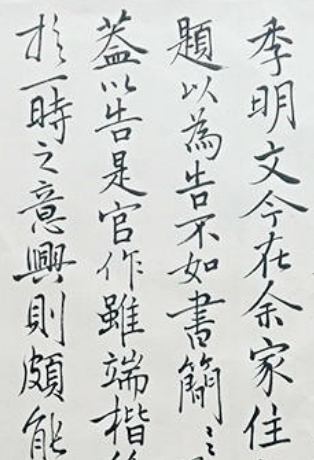 季明文今在余家住
題以為告不如書簡〻
蓋以告是官作雖端楷
於一時之意興則頗能